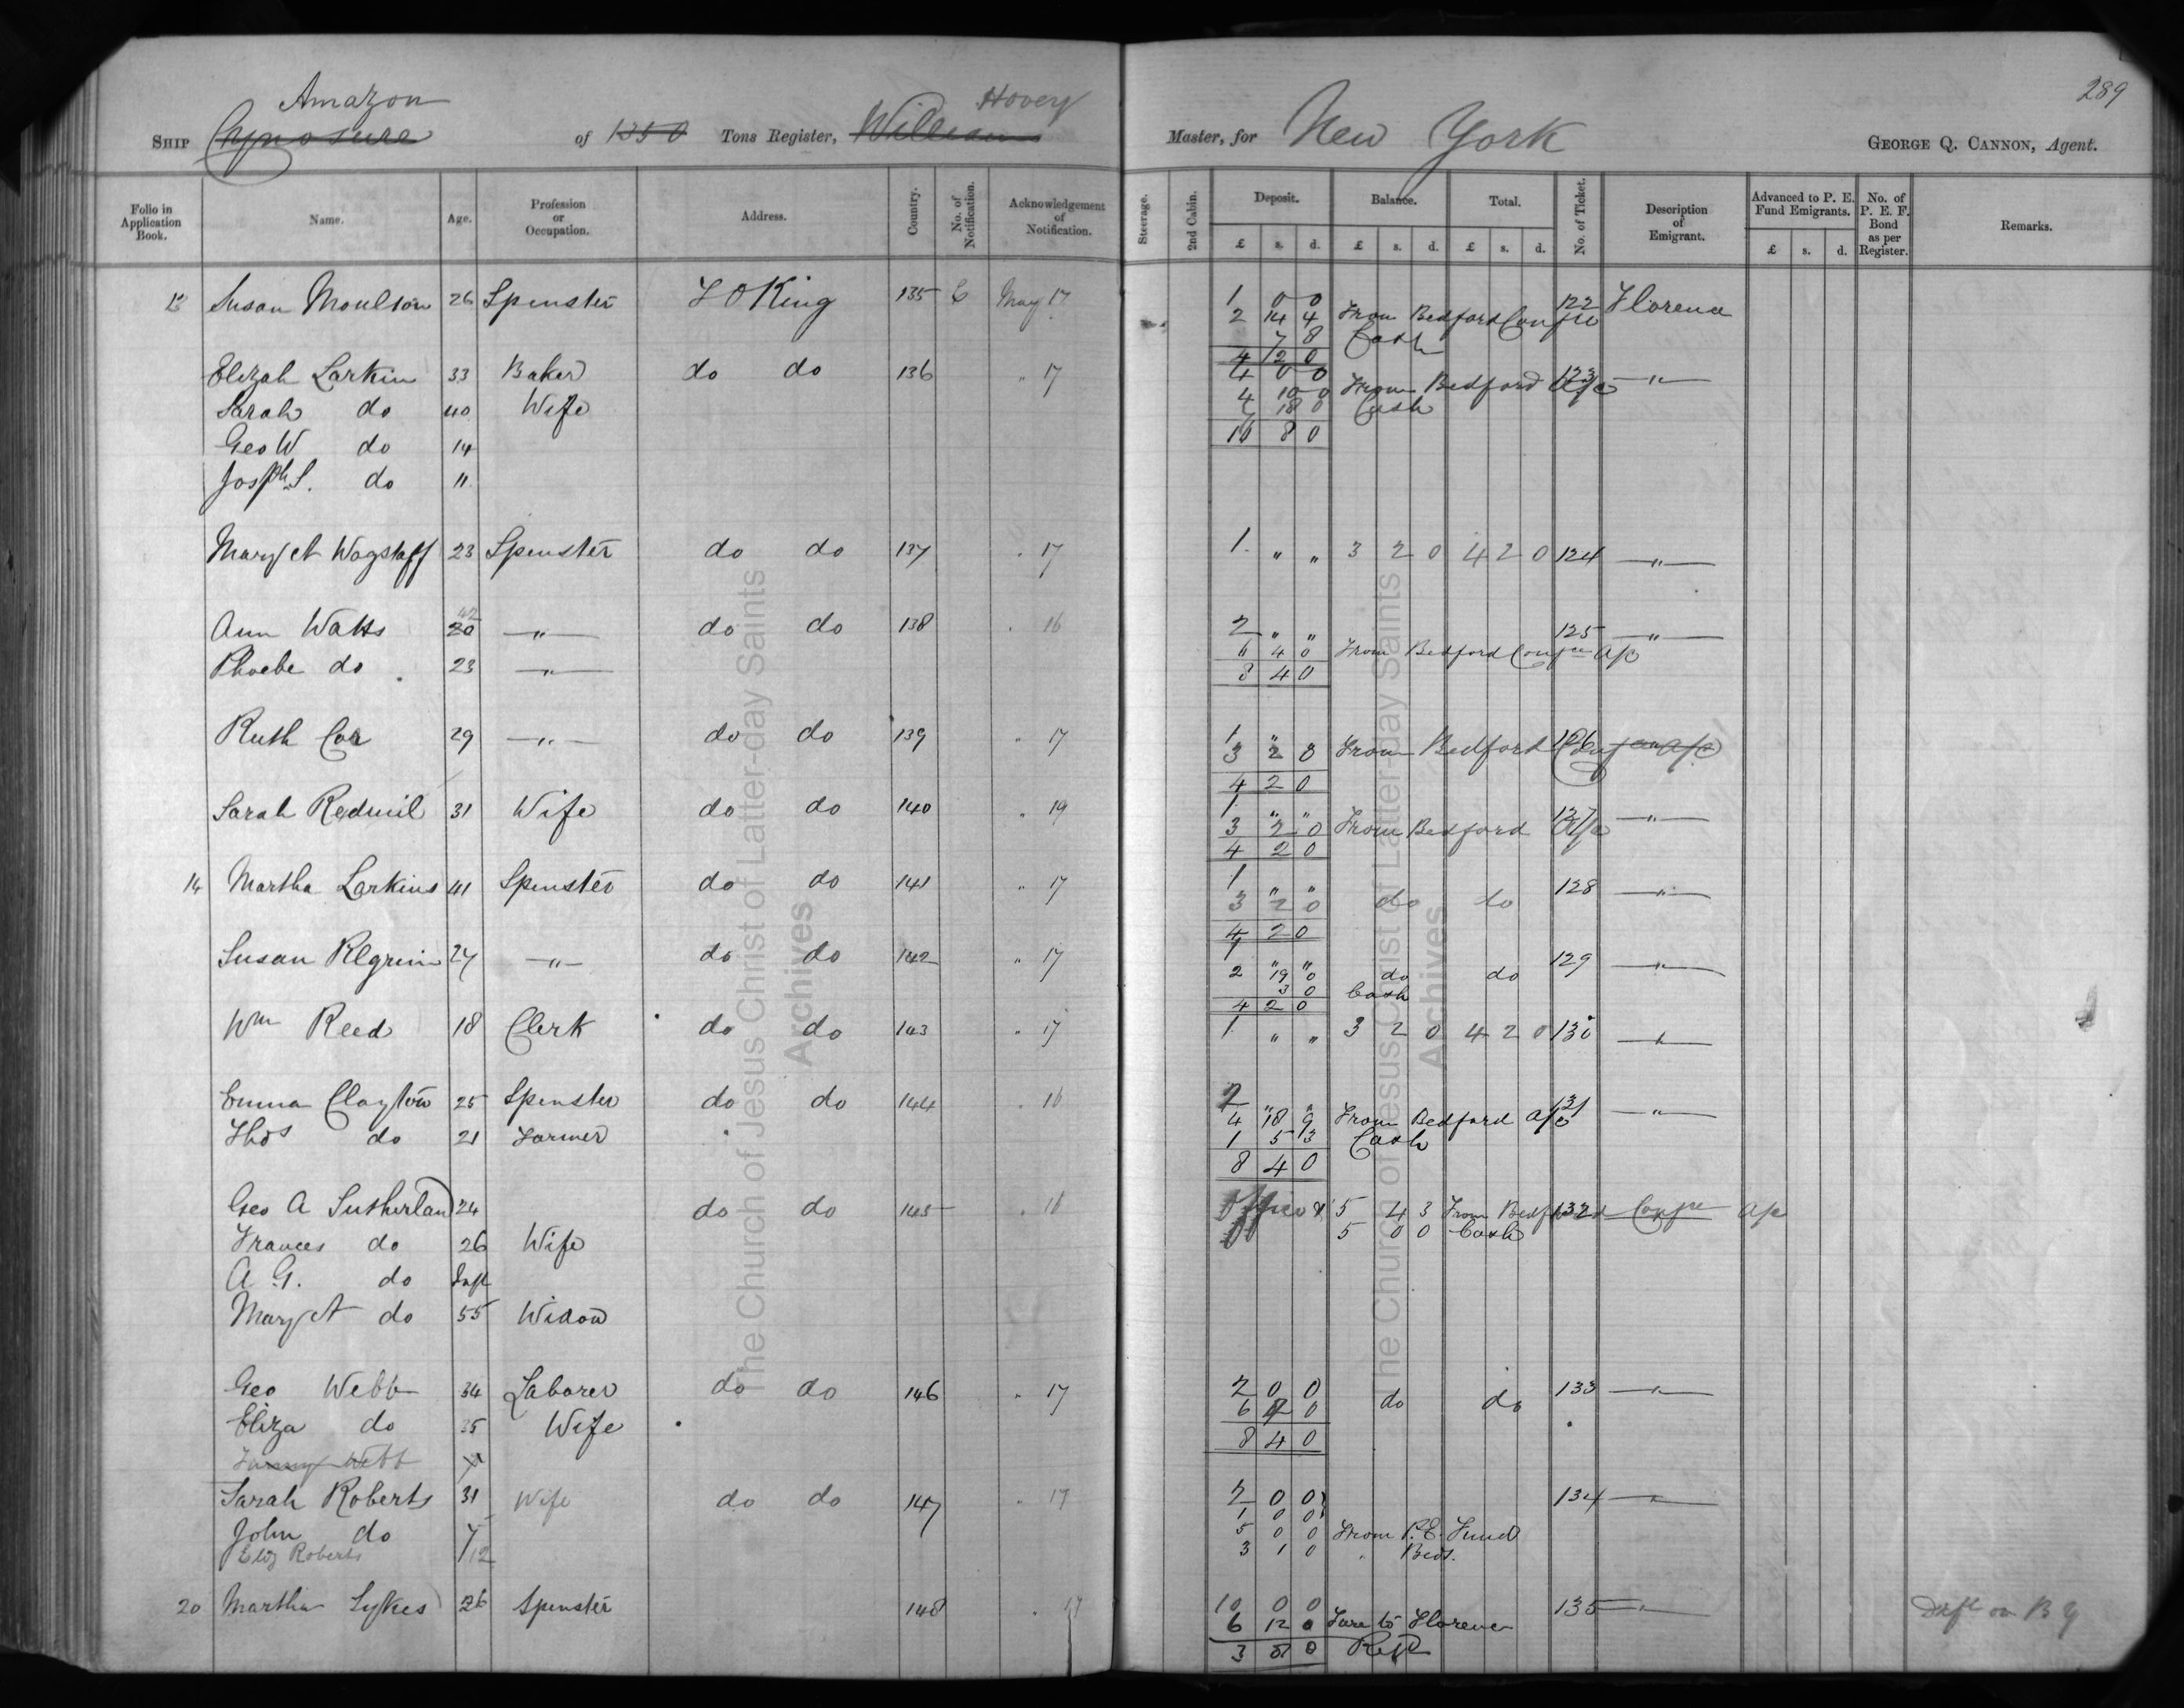 289
Amazon Hovey
SHIP Cynosure of 1350 Tons Register, Williams Master, for New York GEORGE Q. CANNON, Agent.
Folio in Application Book. Name. Age. Profession or Occupation. Address. Country. No. of Notification. Acknowledgement of Notification. Steerage. 2nd Cabin. Deposit. £ s. d. Balance. £ s. d. Total. £ s. d. No. of Ticket. Description of Emigrant. Advanced to P. E. Fund Emigrants. £ s. d. No. of P. E. F. Bond as per Register. Remarks.
Susan Moulton 26 Spenster 135 May 17 1 0 0 122 Florence
2 14 4 From Bedford
7 8 Cash
4 2 0
Elizah Larkin 33 Baker do do 136 " 17 4 0 0 123 "
Sarah do 40 Wife 4 10 0 From Bedford a/c
7 18 0 Cash
Geo W do 14 16 8 0
Josph S. do 11
Mary A Wagstaff 23 Spenster do do 137 " 17 1 " " 3 2 0 4 2 0 124 "
Ann Watts 42 20 " do do 138 " 16 2 " " 125 "
6 4 0 From Bedford Confce a/c
Phoebe do 23 " 8 4 0
Ruth Cox 29 " do do 139 " 17 1 " 126
3 2 0 From Bedford Confce a/c
4 2 0
Sarah Redmil 31 Wife do do 140 " 19 1 " " 127 "
3 2 0 From Bedford a/c
4 2 0
14 Martha Larkins 41 Spenster do do 141 " 17 1 " " 128 "
3 2 0 do do
4 2 0
Susan Pilgrim 24 " do do 142 " 17 1 " " 129 "
2 19 0 do do
3 0 Cash
4 2 0
Wm Reed 18 Clerk do do 143 " 17 1 " " 3 2 0 4 2 0 130 "
Emma Clayton 25 Spenster do do 144 " 16 2 " " 131 "
4 18 9 From Bedford a/c
Thos do 21 Farmer 1 5 3 Cash
8 4 0
Geo A Sutherland 24 do do 145 " 18 Office 5 4 3 From Bedford 132 Confce a/c
5 0 0 Cash
Frances do 26 Wife
A. G. do Inft
Mary A do 55 Widow
Geo Webb 34 Laborer do do 146 " 17 2 0 0 do do 133 "
Eliza do 35 Wife 6 4 0
8 4 0
Fanny Webb
Sarah Roberts 31 Wife do do 147 " 17 2 0 0 134 "
1 0 0
John do 7 5 0 0 From P.E. Fund
Eliz Roberts /12 3 1 0 " Beds.
20 Martha Sykes 26 Spenster 148 " 17 10 0 0 135 " Drft on B Y
6 12 0 Fare to Florence
3 8 0
The Church of Jesus Christ of Latter-day Saints
Archives
The Church of Jesus Christ of Latter-day Saints
Archives